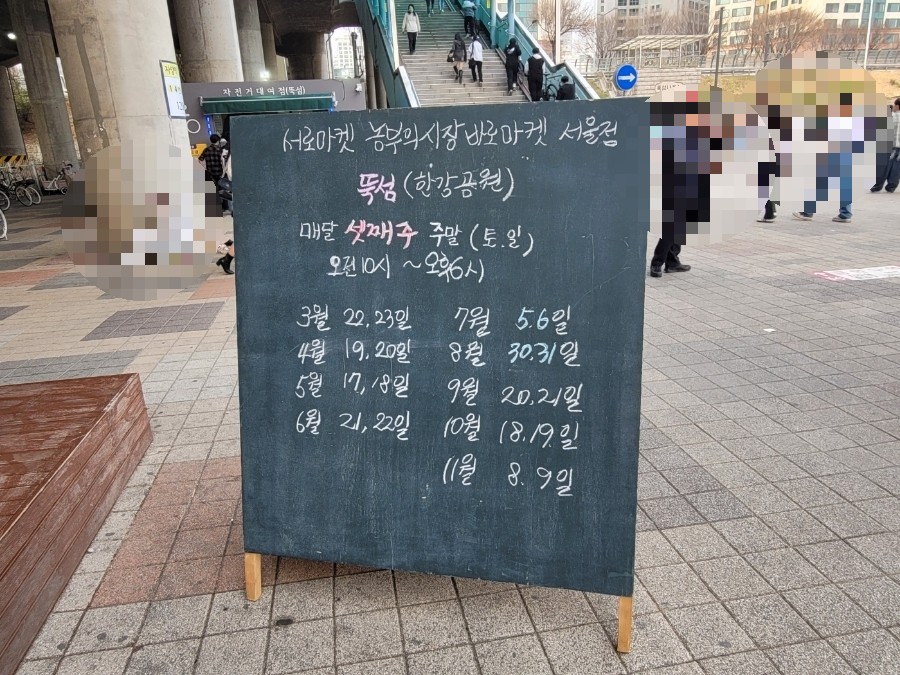 자전거대여점(뚝섬)
서로마켓 농부의시장 바로마켓 서울점
뚝섬 (한강공원)
매달 셋째주 주말 (토.일)
오전10시 ~ 오후6시
3월 22, 23일 7월 5.6일
4월 19, 20일 8월 30.31일
5월 17, 18일 9월 20.21일
6월 21, 22일 10월 18.19일
11월 8. 9일